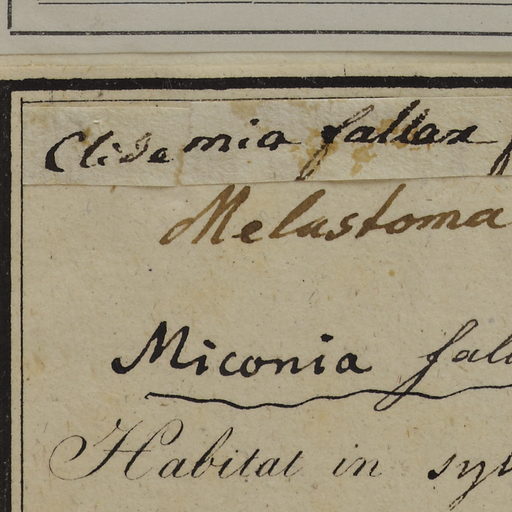 Clidemia fallax
Melastoma
Miconia fal
Habitat in syl